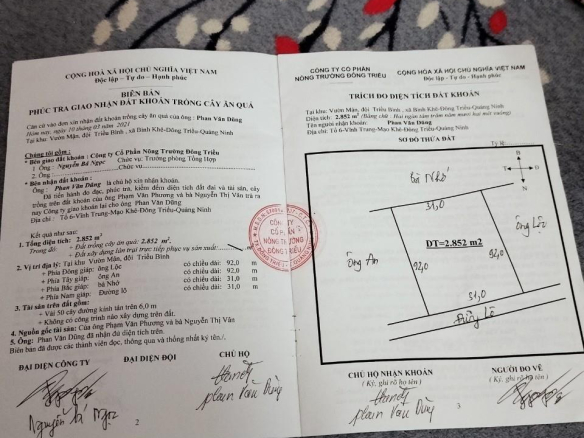 CỘNG HOÀ XÃ HỘI CHỦ NGHĨA VIỆT NAM
Độc lập – Tự do – Hạnh phúc
BIÊN BẢN
PHÚC TRA GIAO NHẬN ĐẤT KHOÁN TRỒNG CÂY ĂN QUẢ
Căn cứ vào đơn xin nhận đất khoán trồng cây ăn quả của ông: Phan Văn Dũng
Hôm nay, ngày 10 tháng 03 năm 2021
Tại khu: Vườn Mận, đội Triều Bình, xã Bình Khê-Đông Triều-Quảng Ninh
Chúng tôi gồm:
* Bên giao đất khoán: Công ty Cổ Phần Nông Trường Đông Triều
1. Ông: Nguyễn Bá Ngọc Chức vụ: Trưởng phòng Tổng Hợp
2. Ông: Chức vụ
* Bên nhận đất khoán:
Ông: Phan Văn Dũng là chủ hộ xin nhận khoán.
Đã tiến hành đo đạc, phúc tra, kiểm đếm diện tích đất đai và tài sản, cây
trồng trên đất khoán của ông Phạm Văn Phương và bà Nguyễn Thị Vân trả ra
nay Công ty giao khoán lại cho ông Phan Văn Dũng
Địa chỉ: Tổ 6-Vĩnh Trung-Mạo Khê-Đông Triều-Quảng Ninh
Kết quả như sau:
1. Tổng diện tích: 2.852 m²
Trong đó: + Đất trồng cây ăn quả: 2.852 m².
+ Đất xây dựng lán trại trực tiếp phục vụ sản xuất: m²
2. Vị trí địa lí: Tại khu Vườn Mận, đội Triều Bình
+ Phía Đông giáp: ông Lộc có chiều dài: 92,0 m
+ Phía Tây giáp: ông An có chiều dài: 92,0 m
+ Phía Bắc giáp: bà Nhớ có chiều dài: 31,0 m
+ Phía Nam giáp: Đường lô có chiều dài: 31,0 m
3. Tài sản trên đất gồm:
- Vải 50 cây đường kính tán trên 6,0 m
- Không có công trình nào xây dựng trên đất.
4. Nguồn gốc tài sản: Của ông Phạm Văn Phương và bà Nguyễn Thị Vân
5. Ông: Phan Văn Dũng đã nhận đủ diện tích trên.
Biên bản đã được các thành viên đọc, thông qua và thống nhất ký tên./.
ĐẠI DIỆN CÔNG TY ĐẠI DIỆN ĐỘI CHỦ HỘ
Nguyễn Bá Ngọc
phan Văn Dũng
2
CÔNG TY CỔ PHẦN
NÔNG TRƯỜNG
ĐÔNG TRIỀU
CÔNG TY CỔ PHẦN
NÔNG TRƯỜNG ĐÔNG TRIỀU
CỘNG HOÀ XÃ HỘI CHỦ NGHĨA VIỆT NAM
Độc lập - Tự do - Hạnh phúc
TRÍCH ĐO DIỆN TÍCH ĐẤT KHOÁN
Tại khu: Vườn Mận, đội Triều Bình, xã Bình Khê-Đông Triều-Quảng Ninh
Diện tích: 2.852 m² (Bằng chữ: Hai ngàn tám trăm năm mươi hai mét vuông)
Tên người nhận khoán: Phan Văn Dũng
Địa chỉ: Tổ 6-Vĩnh Trung-Mạo Khê-Đông Triều-Quảng Ninh
SƠ ĐỒ THỬA ĐẤT
bà Nhớ
31,0
ông Lộc
ông An
ĐT=2.852 m2
92,0
92,0
31,0
Đường Lô
CHỦ HỘ NHẬN KHOÁN NGƯỜI ĐO VẼ
( Ký, ghi rõ họ tên ) ( Ký, ghi rõ họ tên )
phan Văn Dũng
3